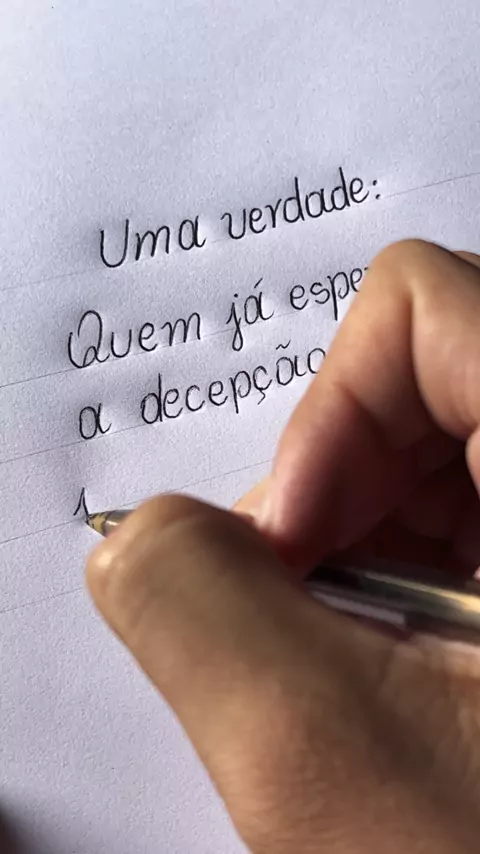 Uma verdade:
Quem já espe
a decepção